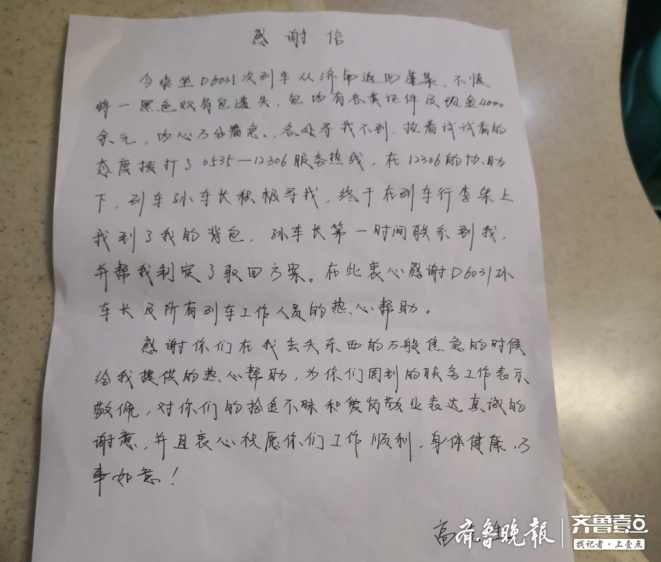 感谢信
今乘坐D6031次列车从济南返回蓬莱，不慎
将一黑色双肩包遗失，包内有各类证件及现金4000
余元，内心万分着急。各处寻找不到，抱着试试看的
态度拨打了0535—12306服务热线，在12306的协助
下，列车孙车长积极寻找，终于在列车行李架上
找到了我的背包，孙车长第一时间联系到我，
并帮我制定了取回方案。在此衷心感谢D6031孙
车长及所有列车工作人员的热心帮助。
感谢你们在我丢失东西的万般焦急的时候
给我提供的热心帮助，为你们周到的服务工作表示
敬佩，对你们的拾金不昧和爱岗敬业表达真诚的
谢意，并且衷心祝愿你们工作顺利，身体健康，万
事如意！
高
齐鲁晚报 齐鲁壹点
找记者·上壹点